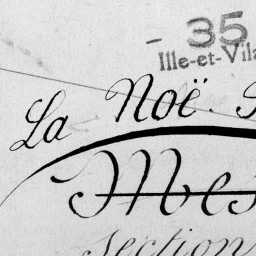 - 35
Ille-et-Vila
La Noë
Mes
Section